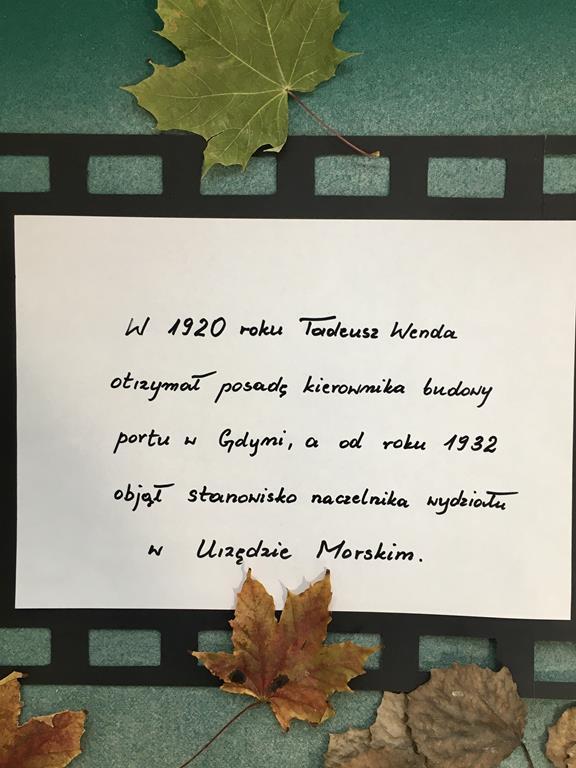 W 1920 roku Tadeusz Wenda
otrzymał posadę kierownika budowy
portu w Gdyni, a od roku 1932
objął stanowisko naczelnika wydziału
w Urzędzie Morskim.